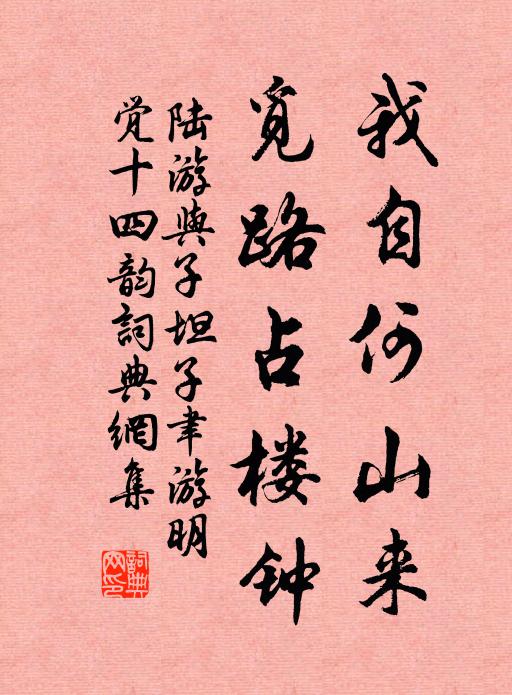 我自何山来
觅路占楼钟
陆游与子坦子聿游明
觉十四韵词典網集
詞典网印